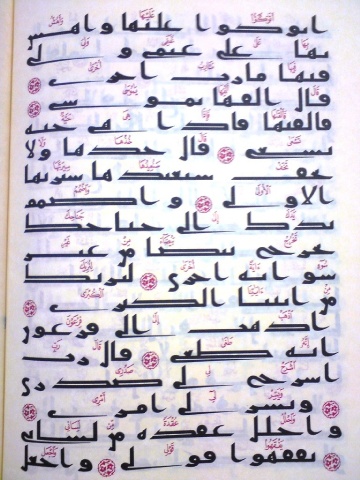 اتوكوا عليها واهش
بها على غنمي ولي
فيها مارب اخرى
قال القها يموسى
فالقيها فاذا هي حية
تسعى قال خذها ولا
تخف سنعيدها سيرتها
الاولى واضمم
يدك الى جناحك
تخرج بيضا من غير
سو اية اخرى لنريك
من ايتنا الكبرى
اذهب الى فرعون
انه طغى قال رب
اشرح لي صدري
ويسر لي امري
واحلل عقدة من لساني
يفقهوا قولي واجعل